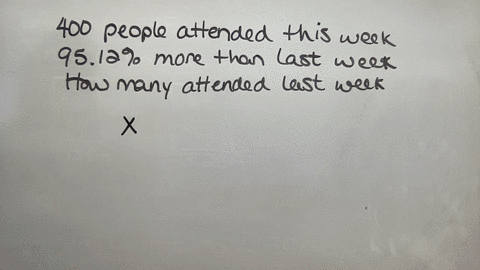 400 people attended this week
95.12% more than last week
How many attended last week
X